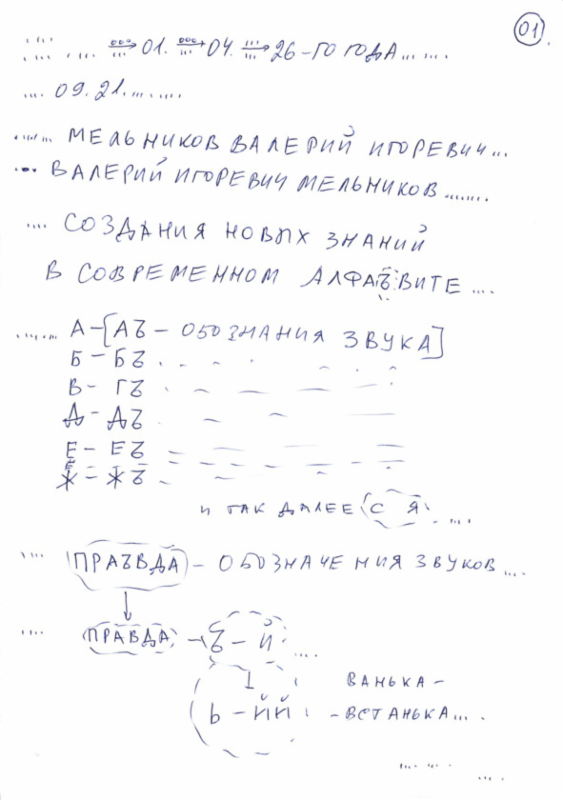 01.
... ... 01. 04. 26-ГО ГОДА... ...
.... 09.21.... ....
....... МЕЛЬНИКОВ ВАЛЕРИЙ ИГОРЕВИЧ...
... ВАЛЕРИЙ ИГОРЕВИЧ МЕЛЬНИКОВ.......
.... СОЗДАНИЯ НОВЫХ ЗНАНИЙ
В СОВРЕМЕННОМ АЛФАЪВИТЕ ....
...... А-[АЪ - ОБОЗНАНИЯ ЗВУКА]
Б - БЪ
В - ГЪ
Д - ДЪ
Е - ЕЪ
Ж - ЖЪ
И ТАК ДАЛЕЕ (С Я) ....
.... (ПРАЪВДА) - ОБОЗНАЧЕНИЯ ЗВУКОВ....
.... (ПРАВДА) - Ъ - Й ....
Ь - ЙЙ
ВАНЬКА -
- ВСТАНЬКА....